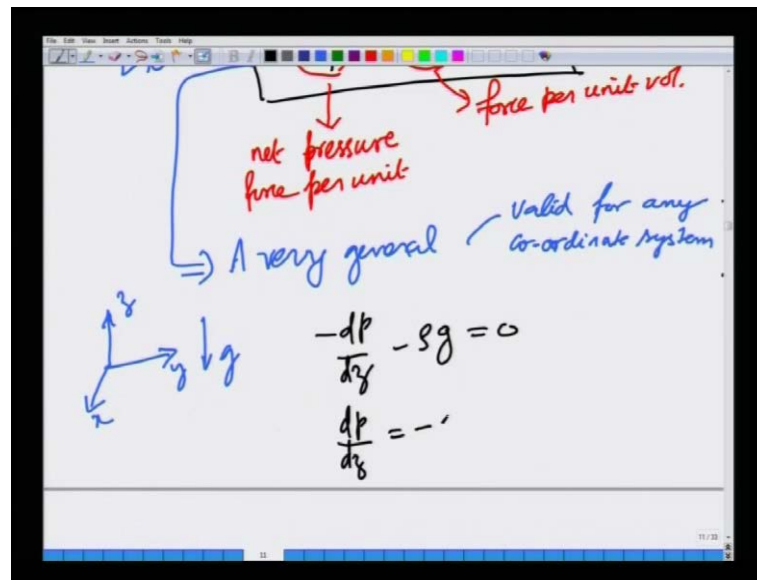 File Edit View Insert Actions Tools Help
force per unit vol.
net pressure
force per unit
⇒ A very general
valid for any
co-ordinate system
z
y
x
g
-dp/dz - ρg = 0
dp/dz = -
11/33
11